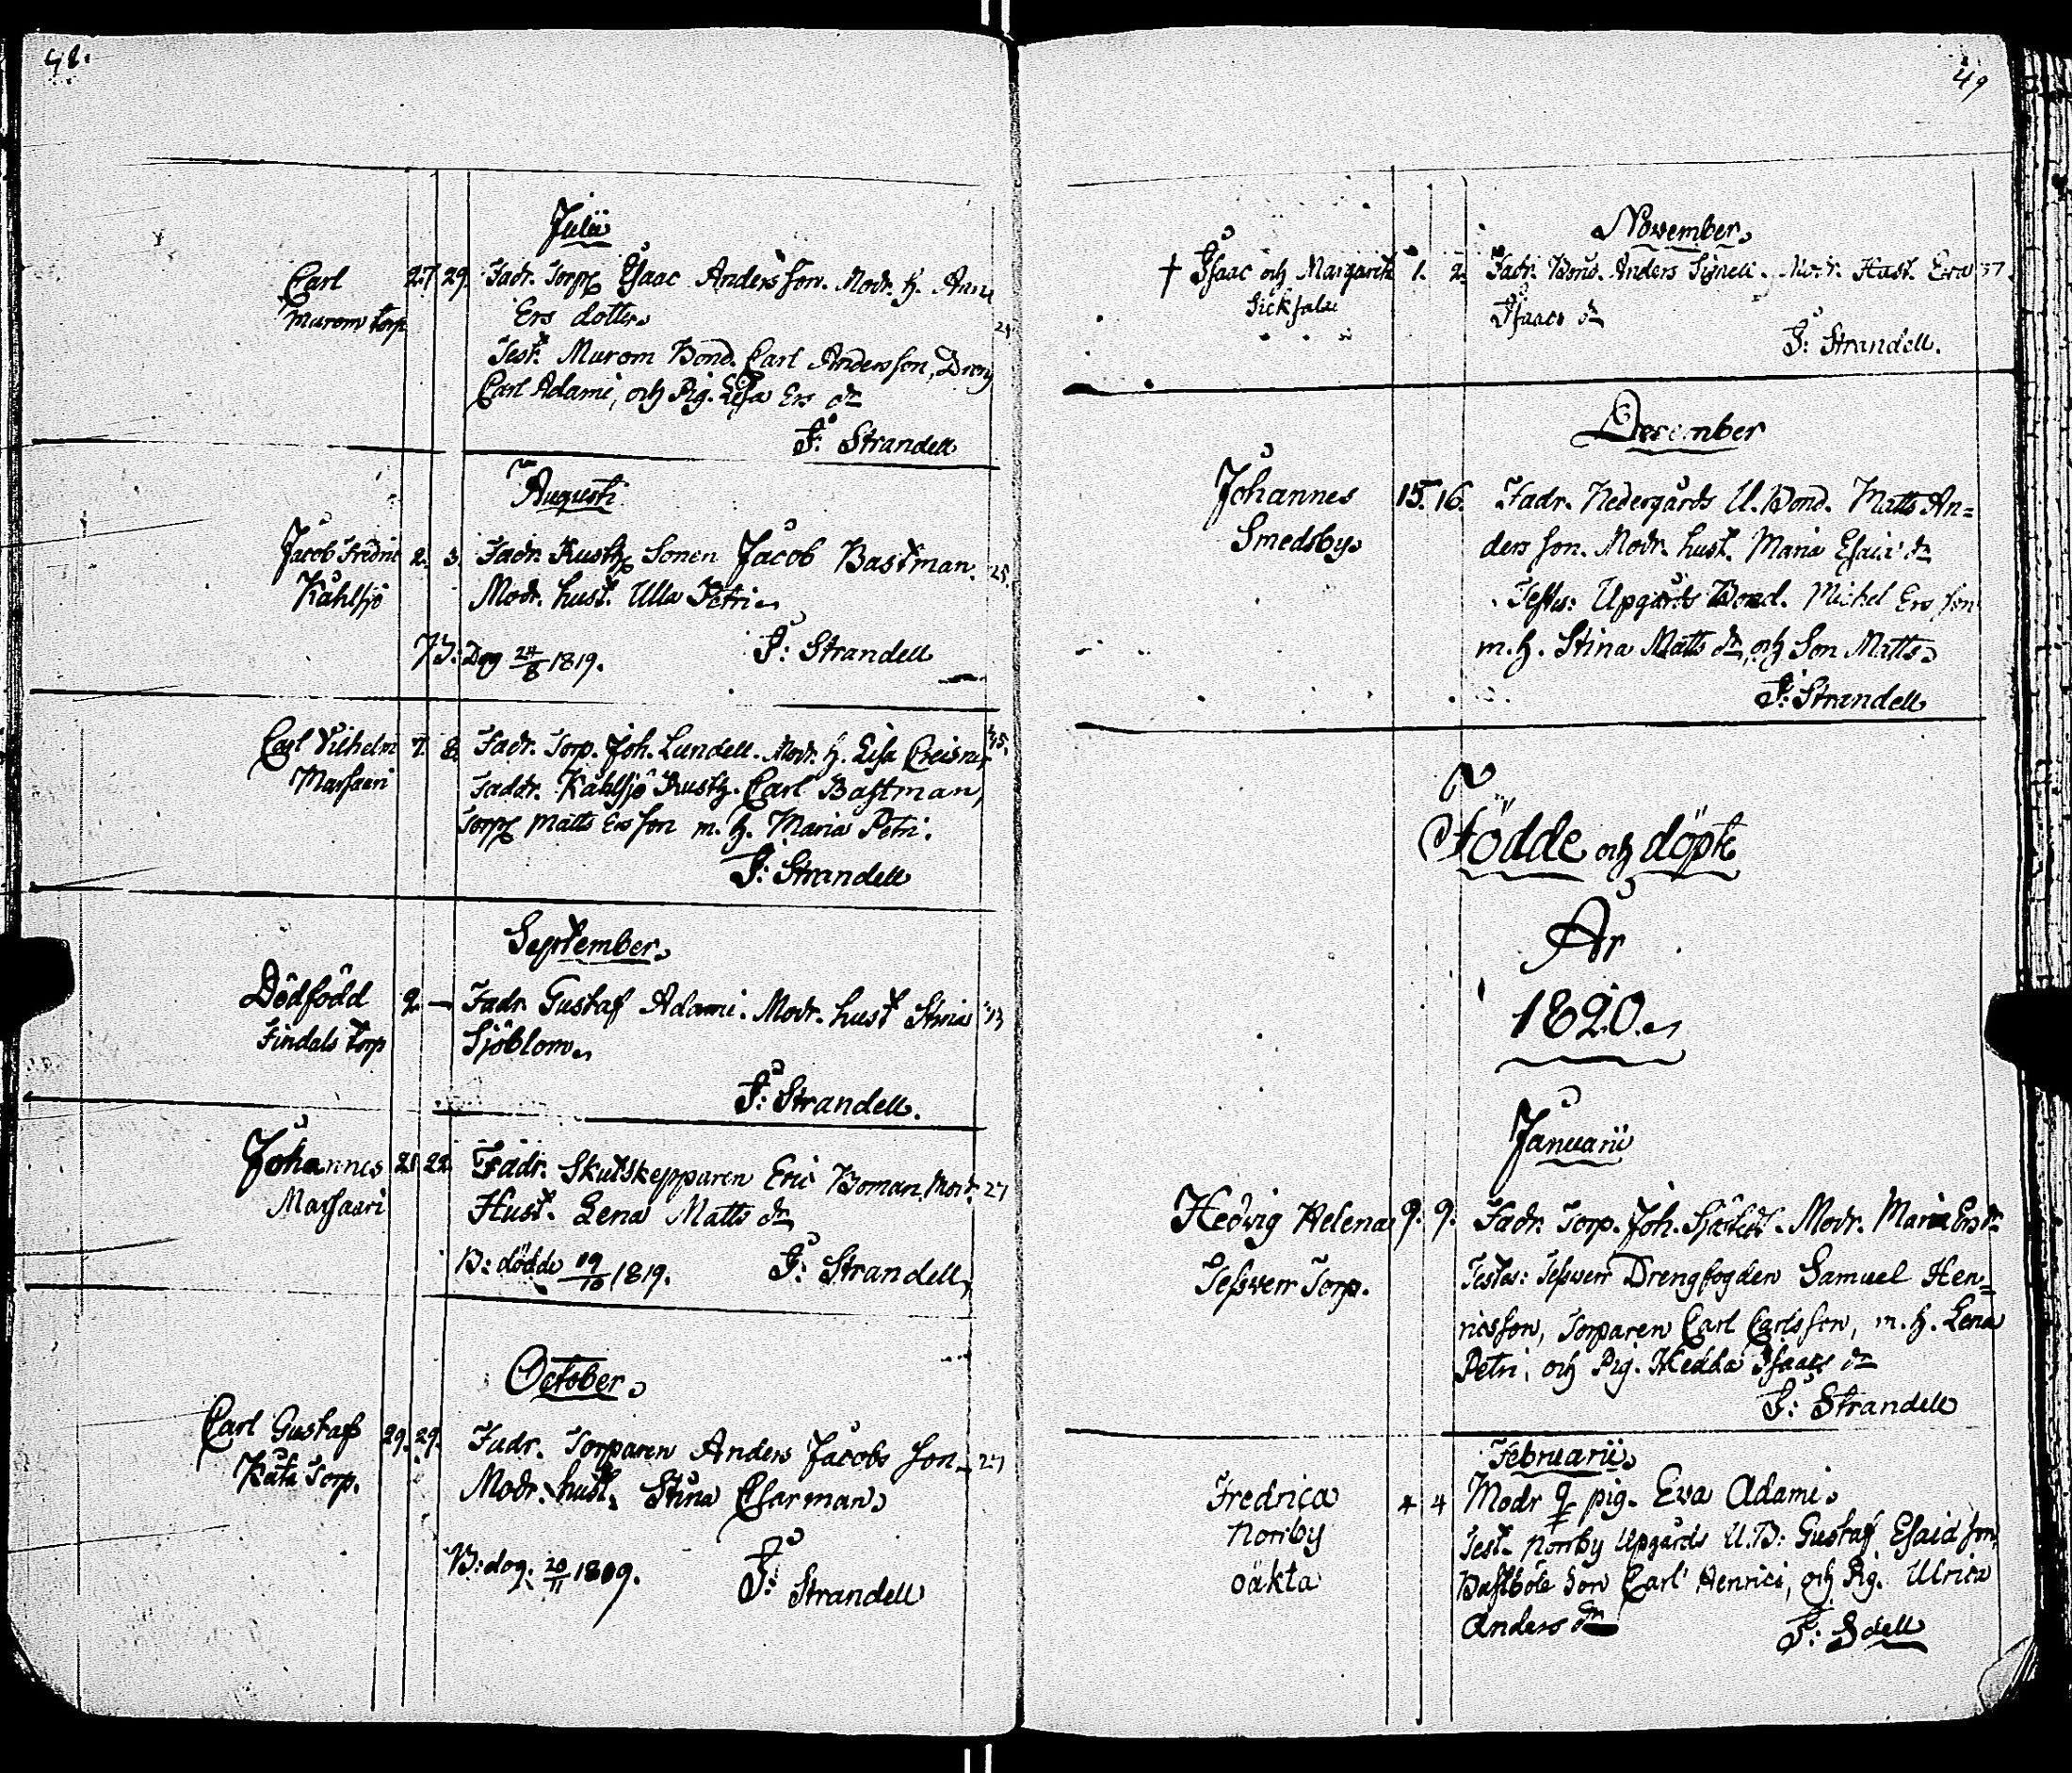 48.
Julii
Carl 27 29. Fadr. Torp. Isaac Andersson. Modr. h. Anna
Murom torp Ers dotter
24
Test. Murom Bond. Carl Andersson, Dreng
Carl Adami, och Pig. Lisa Ers dr
J: Strandell
Augusti
Jacob Fredric 2. 3. Fadr. Rusth. Sonen Jacob Bastman. 25.
Kåhlsjö Modr. hust. Ulla Petri
B: Dog 24/8 1819. J: Strandell
Carl Vilhelm 7. 8. Fadr. Torp. Joh. Lundell. Modr. h. Lisa 45.
Marsaari Faddr. Kåhlsjö Rusth. Carl Bastman,
Torp. Matts Ersson m. h. Maria Petri.
J: Strandell
September
Dödfödd 9. — Fadr. Gustaf Adami. Modr. hust Stina
Findals torp Sjöblom
J: Strandell.
Johannes 21. 22. Fadr. Skutskepparen Eric Boman, Modr. 27
Marsaari Hust. Lena Matts dr
B: dödde 19/10 1819. J: Strandell
October
Carl Gustaf 29. 29. Fadr. Torparen Anders Jacobs son 27
Torp. Modr. hust. Stina
B: dog. 20/11 1819. J:
Strandell
49
November
† Isaac och Margareta 1. 2. Fadr. Bond. Anders Signeli. Modr. Hust. Eva 37.
Sicksalu Isaacs dr
J: Strandell.
December
Johannes 15. 16. Fadr. Nedergårds U. Bond. Matts An=
Smedsby dersson. Modr. hust. Maria Esaiæ dr
Testes: Upgårds Bond. Michel Ersson
m. h. Stina Matts dr, och Son Matts
J: Strandell
Födde och döpte
År
1820.
Januarii
Hedvig Helena 9. 9. Fadr. Torp. Joh. Sjöstedt. Modr. Maria Ers dr
Tesverr Torp. Testes: Tesverr Drengfogden Samuel Hen=
ricsson, Torparen Carl Carlsson, m. h. Lena
Petri, och Pig. Hedda Isaacs dr
J: Strandell
Februarii
Fredrica 4 4 Modr. pig. Eva Adami
Norrby Test. Norrby Upgårds U. B: Gustaf Esaidsson,
oäkta Son Carl Henrici, och Pig. Ulrica
Anders dr J: Sdell